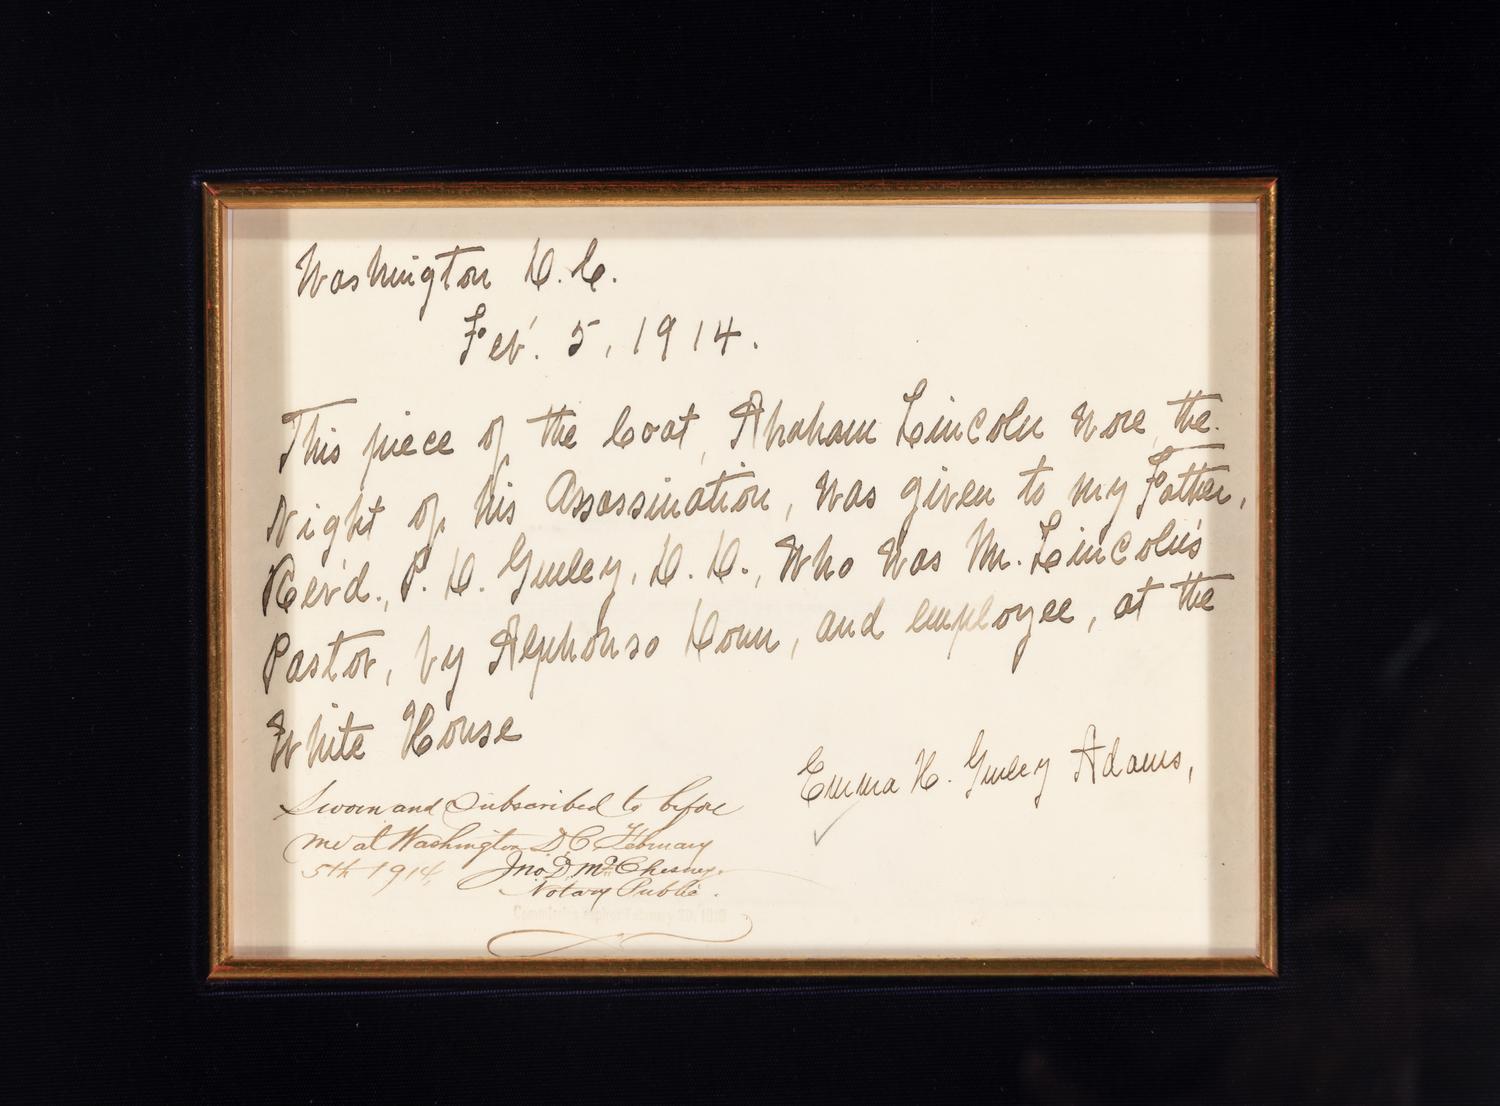 Washington D.C.
Feb'. 5, 1914.
This piece of the Coat, Abraham Lincoln wore, the
Night of his Assassination, was given to my Father,
Rev'd., P. D. Gurley, D. D., Who was Mr. Lincoln's
Pastor, by Alphonso Donn, and employee, at the
White House
Emma H. Gurley Adams,
Sworn and Subscribed to before
me at Washington D.C. February
5th 1914, Jno. D. McChesney.
Notary Public.
Commission expires February